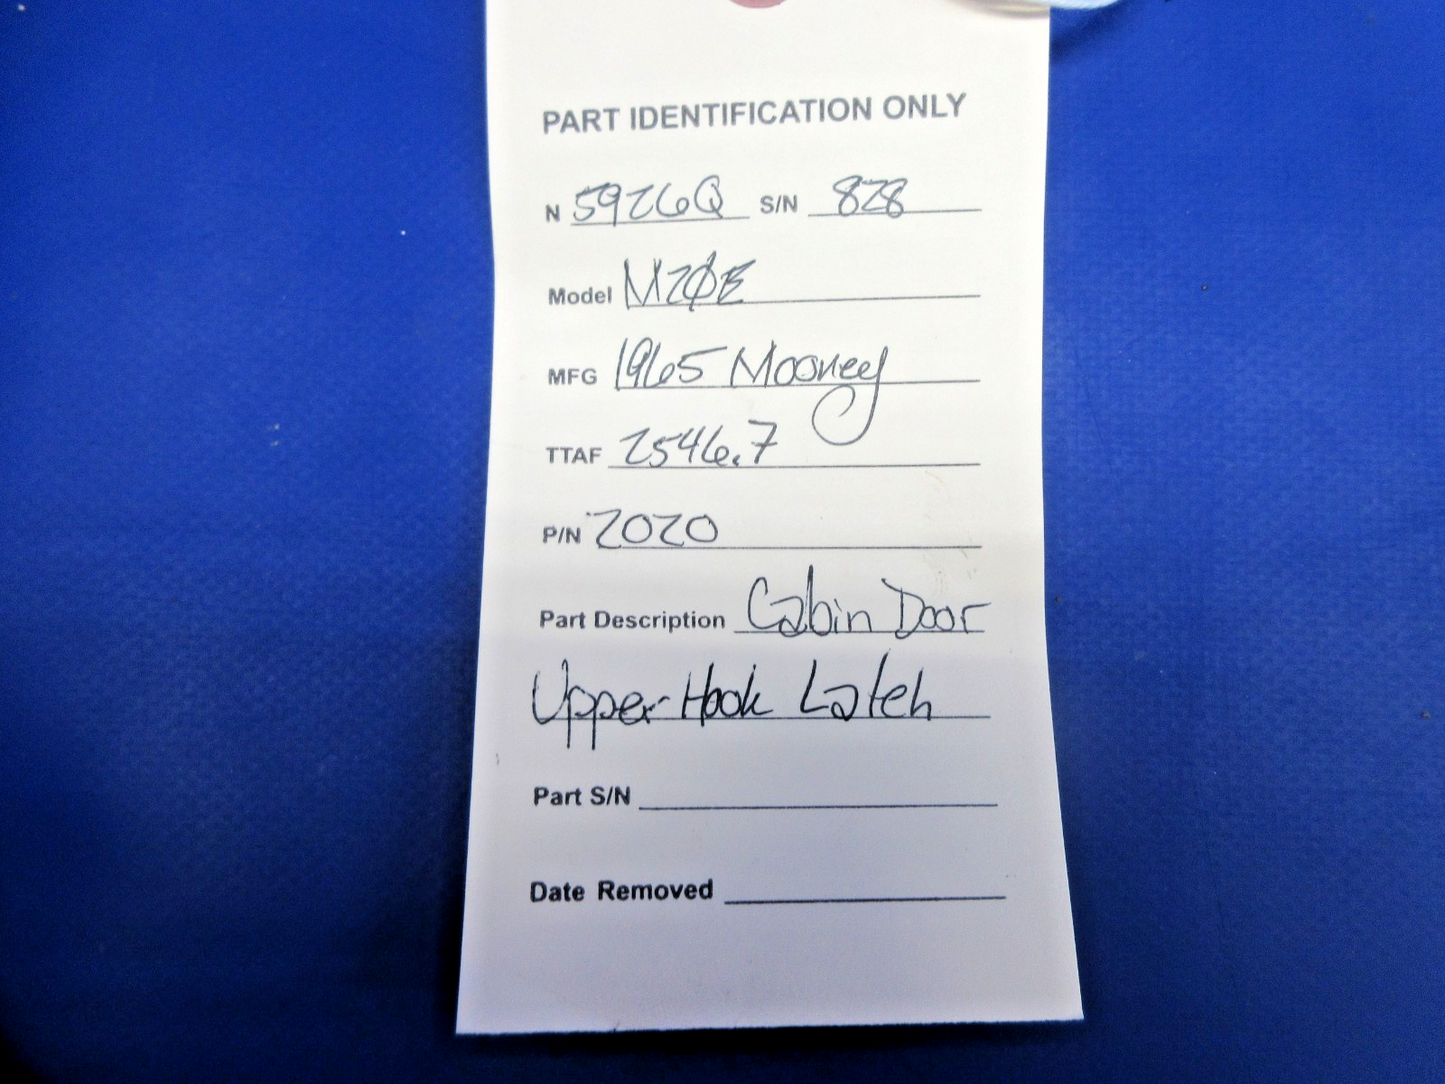 PART IDENTIFICATION ONLY
N 5926Q S/N 828
Model M20E
MFG 1965 Mooney
TTAF 2546.7
P/N 2020
Part Description Cabin Door
Upper Hook Latch
Part S/N
Date Removed